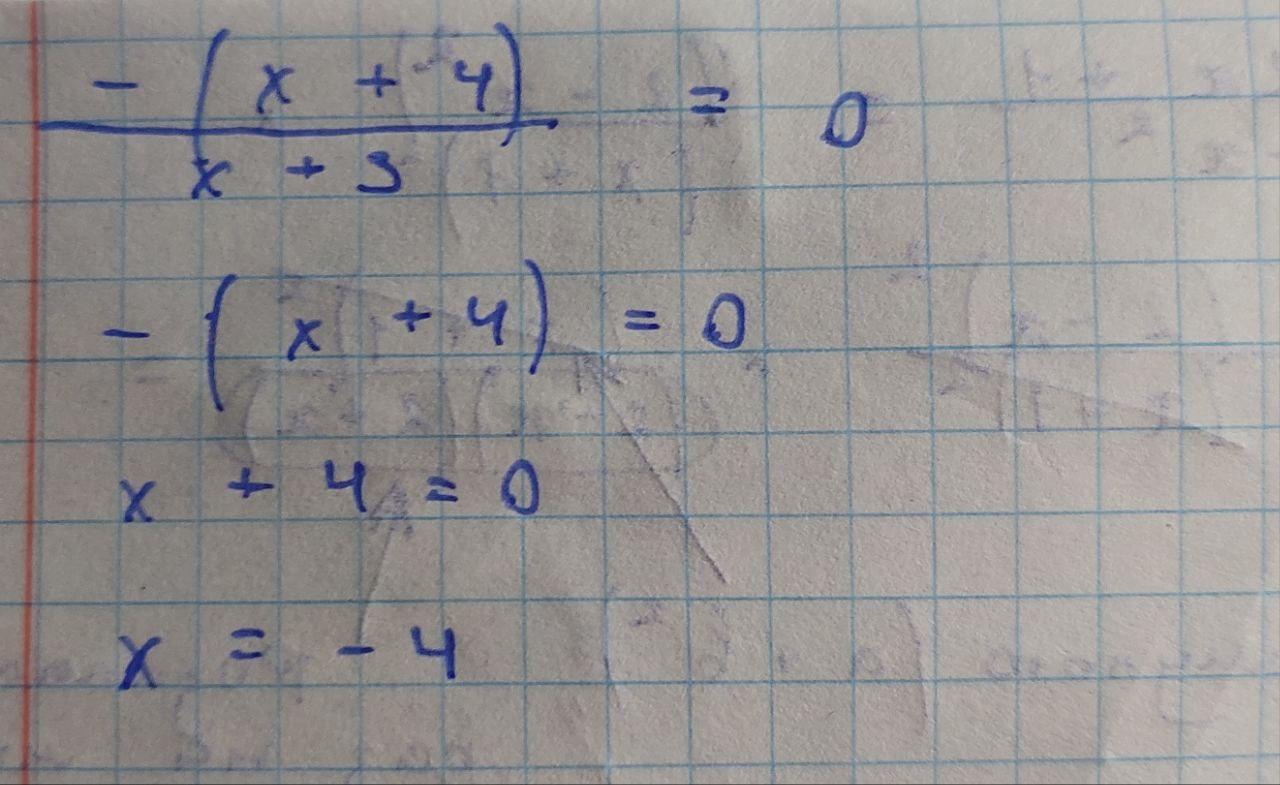 -(x + 4)
x + 3
= 0
-(x + 4) = 0
x + 4 = 0
x = -4